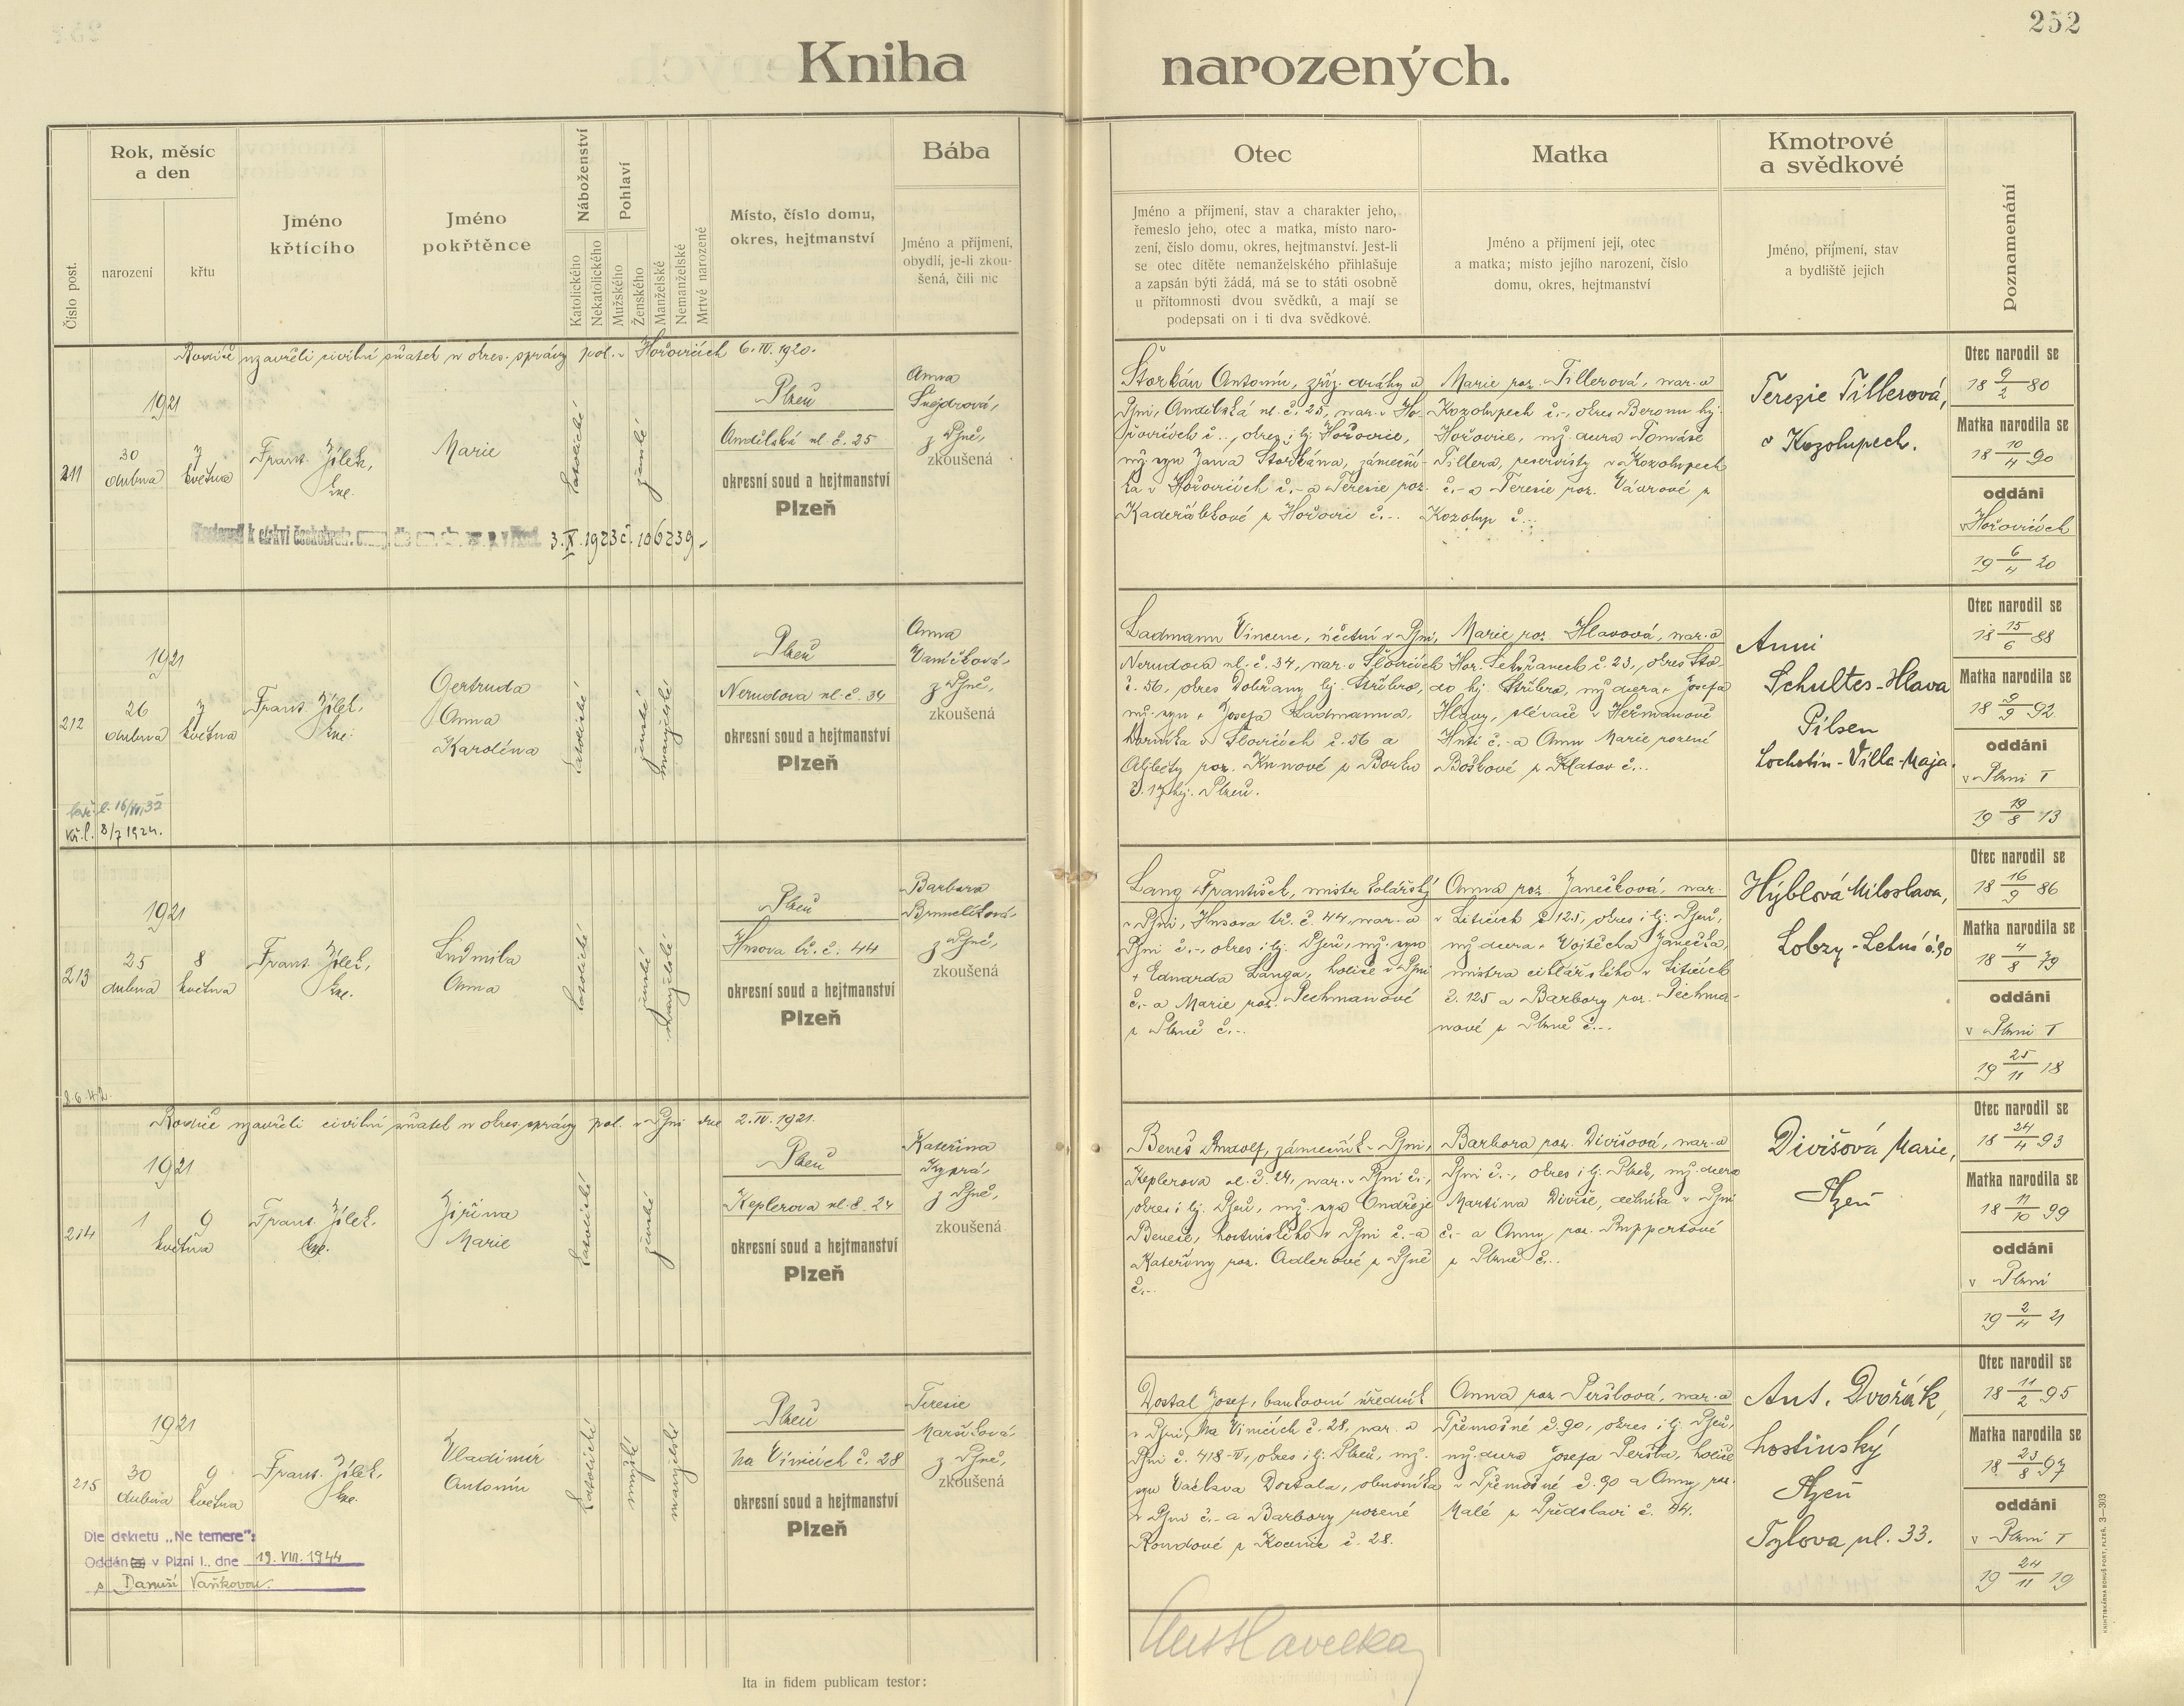 252
Kniha narozených.
Číslo post.
Rok, měsíc
a den
narození
křtu
Jméno
křtícího
Jméno
pokřtěnce
Náboženství
Katolického
Nekatolického
Pohlaví
Mužského
Ženského
Manželské
Nemanželské
Mrtvé narozené
Místo, číslo domu,
okres, hejtmanství
Bába
Jméno a příjmení,
obydlí, je-li zkou-
šená, čili nic
Otec
Jméno a příjmení, stav a charakter jeho,
řemeslo jeho, otec a matka, místo naro-
zení, číslo domu, okres, hejtmanství. Jest-li
se otec dítěte nemanželského přihlašuje
a zapsán býti žádá, má se to státi osobně
u přítomnosti dvou svědků, a mají se
podepsati on i ti dva svědkové.
Matka
Jméno a příjmení její, otec
a matka; místo jejího narození, číslo
domu, okres, hejtmanství
Kmotrové
a svědkové
Jméno, příjmení, stav
a bydliště jejich
Poznamenání
Rodiče uzavřeli civilní sňatek u okres. správy pol. v Hořovicích 6.IV.1920.
211
1921
30
dubna
7
května
Frant. Jílek,
kne.
Marie
katolické
ženské
Plzeň
Andělská ul. č. 25
okresní soud a hejtmanství
Plzeň
Anna
Šnejdrová,
z Plzně,
zkoušená
k církvi českobratr.
3.IX.1923 č. 106239
Štorkán Antonín, zříz. dráhy v
Plzni, Andělská ul. č. 25, nar. v Ho-
řovicích č. -, okres i hj. Hořovice,
mž. syn Jana Štorkána, zámeční-
ka v Hořovicích č. - a Terezie roz.
Kadeřábkové z Hořovic č. -.
Marie roz. Tillerová, nar. v
Kozolupech č. -, okres Beroun hj.
Hořovice, mž dcera Tomáše
Tillera, reservisty v Kozolupech
č. - a Terezie roz. Vávrové z
Kozolup č. -.
Terezie Tillerová,
v Kozolupech.
Otec narodil se
18 9/2 80
Matka narodila se
18 10/4 90
oddáni
v Hořovicích
19 6/4 20
212
1921
26
dubna
7
května
Frant. Jílek,
kne.
Gertruda
Anna
Karolína
katolické
ženské
manželské
Plzeň
Nerudova ul. č. 34
okresní soud a hejtmanství
Plzeň
Anna
Vaníčková,
z Plzně,
zkoušená
kř. l. 8/7 1924.
Ladmann Vincenc, účetní v Plzni,
Nerudova ul. č. 34, nar. v Šlovicích
č. 56, okres Dobřany hj. Stříbro,
mž. syn + Josefa Ladmanna,
horníka v Šlovicích č. 56 a
Alžběty roz. Kunové z Borku
č. 17 hj. Plzeň.
Marie roz. Hlavová, nar. v
Hor. Sekyřanech č. 23, okres Sto-
do hj. Stříbro, mž dcera + Josefa
Hlavy, slévače v Heřmanově
Huti č. - a Anny Marie rozené
Boškové z Klatov č. -.
Anni
Schultes-Hlava
Pilsen
Lochotín-Villa-Maja.
Otec narodil se
18 15/6 88
Matka narodila se
18 9/9 92
oddáni
v Plzni I
19 19/8 13
213
1921
25
dubna
8
května
Frant. Jílek,
kne.
Ludmila
Anna
katolické
ženské
manželské
Plzeň
Husova tř. č. 44
okresní soud a hejtmanství
Plzeň
Barbora
Brunclíková,
z Plzně,
zkoušená
8.6.42.
Lang František, mistr kolářský
v Plzni, Husova tř. č. 44, nar. v
Plzni č. -, okres i hj. Plzeň, mž. syn
+ Eduarda Langa, holiče v Plzni
č. - a Marie roz. Pechmanové
z Plzně č. -.
Anna roz. Janečková, nar.
v Liticích č. 125, okres i hj. Plzeň,
mž dcera + Vojtěcha Janečka,
mistra cihlářského v Liticích
č. 125 a Barbory roz. Pechma-
nové z Plzně č. -.
Hýblová Miloslava,
Lobzy-Letná č. 90
Otec narodil se
18 16/9 86
Matka narodila se
18 4/8 79
oddáni
v Plzni I
19 25/11 18
Rodiče uzavřeli civilní sňatek u okres. správy pol. v Plzni dne 2.IV.1921.
214
1921
1
9
května
Frant. Jílek,
kne.
Jiřina
Marie
katolické
ženské
Plzeň
Keplerova ul. č. 24
okresní soud a hejtmanství
Plzeň
Kateřina
Kyprá,
z Plzně,
zkoušená
Beneš Rudolf, zámečník v Plzni,
Keplerova ul. č. 24, nar. v Plzni č. -,
okres i hj. Plzeň, mž. syn Ondřeje
Beneše, hostinského v Plzni č. - a
Kateřiny roz. Adlerové z Plzně
č. -.
Barbora roz. Divišová, nar. v
Plzni č. -, okres i hj. Plzeň, mž. dcera
Martina Diviše, dělníka v Plzni
č. - a Anny roz. Ruppertové
z Plzně č. -.
Divišová Marie,
Plzeň
Otec narodil se
18 24/4 93
Matka narodila se
18 11/10 99
oddáni
v Plzni
19 2/4 21
215
1921
30
dubna
9
května
Frant. Jílek,
kne.
Vladimír
Antonín
katolické
mužské
manželské
Plzeň
Na Vinicích č. 28
okresní soud a hejtmanství
Plzeň
Terezie
Maršíková,
z Plzně,
zkoušená
Dle dekretu „Ne temere":
Oddán v Plzni I., dne 19. VIII. 1944
s Danuší Vaňkovou.
Dostal Josef, bankovní úředník
v Plzni, Na Vinicích č. 28, nar. v
Plzni č. 418-IV, okres i hj. Plzeň, mž.
syn Václava Dostala, obuvníka
v Plzni č. - a Barbory rozené
Roudové z Kocenic č. 28.
Anna roz Peršlová, nar. v
Třemošné č. 90, okres i hj. Plzeň,
mž. dcera Josefa Peršla, holiče
v Třemošné č. 90 a Anny roz.
Malé z Předslavi č. 44.
Ant. Dvořák,
hostinský
Plzeň
Tylova ul. 33.
Otec narodil se
18 11/2 95
Matka narodila se
18 23/8 97
oddáni
v Plzni I
19 24/11 19
Ita in fidem publicam testor:
KNIHTISKÁRNA BOHUŠ PORT, PLZEŇ. 3—303